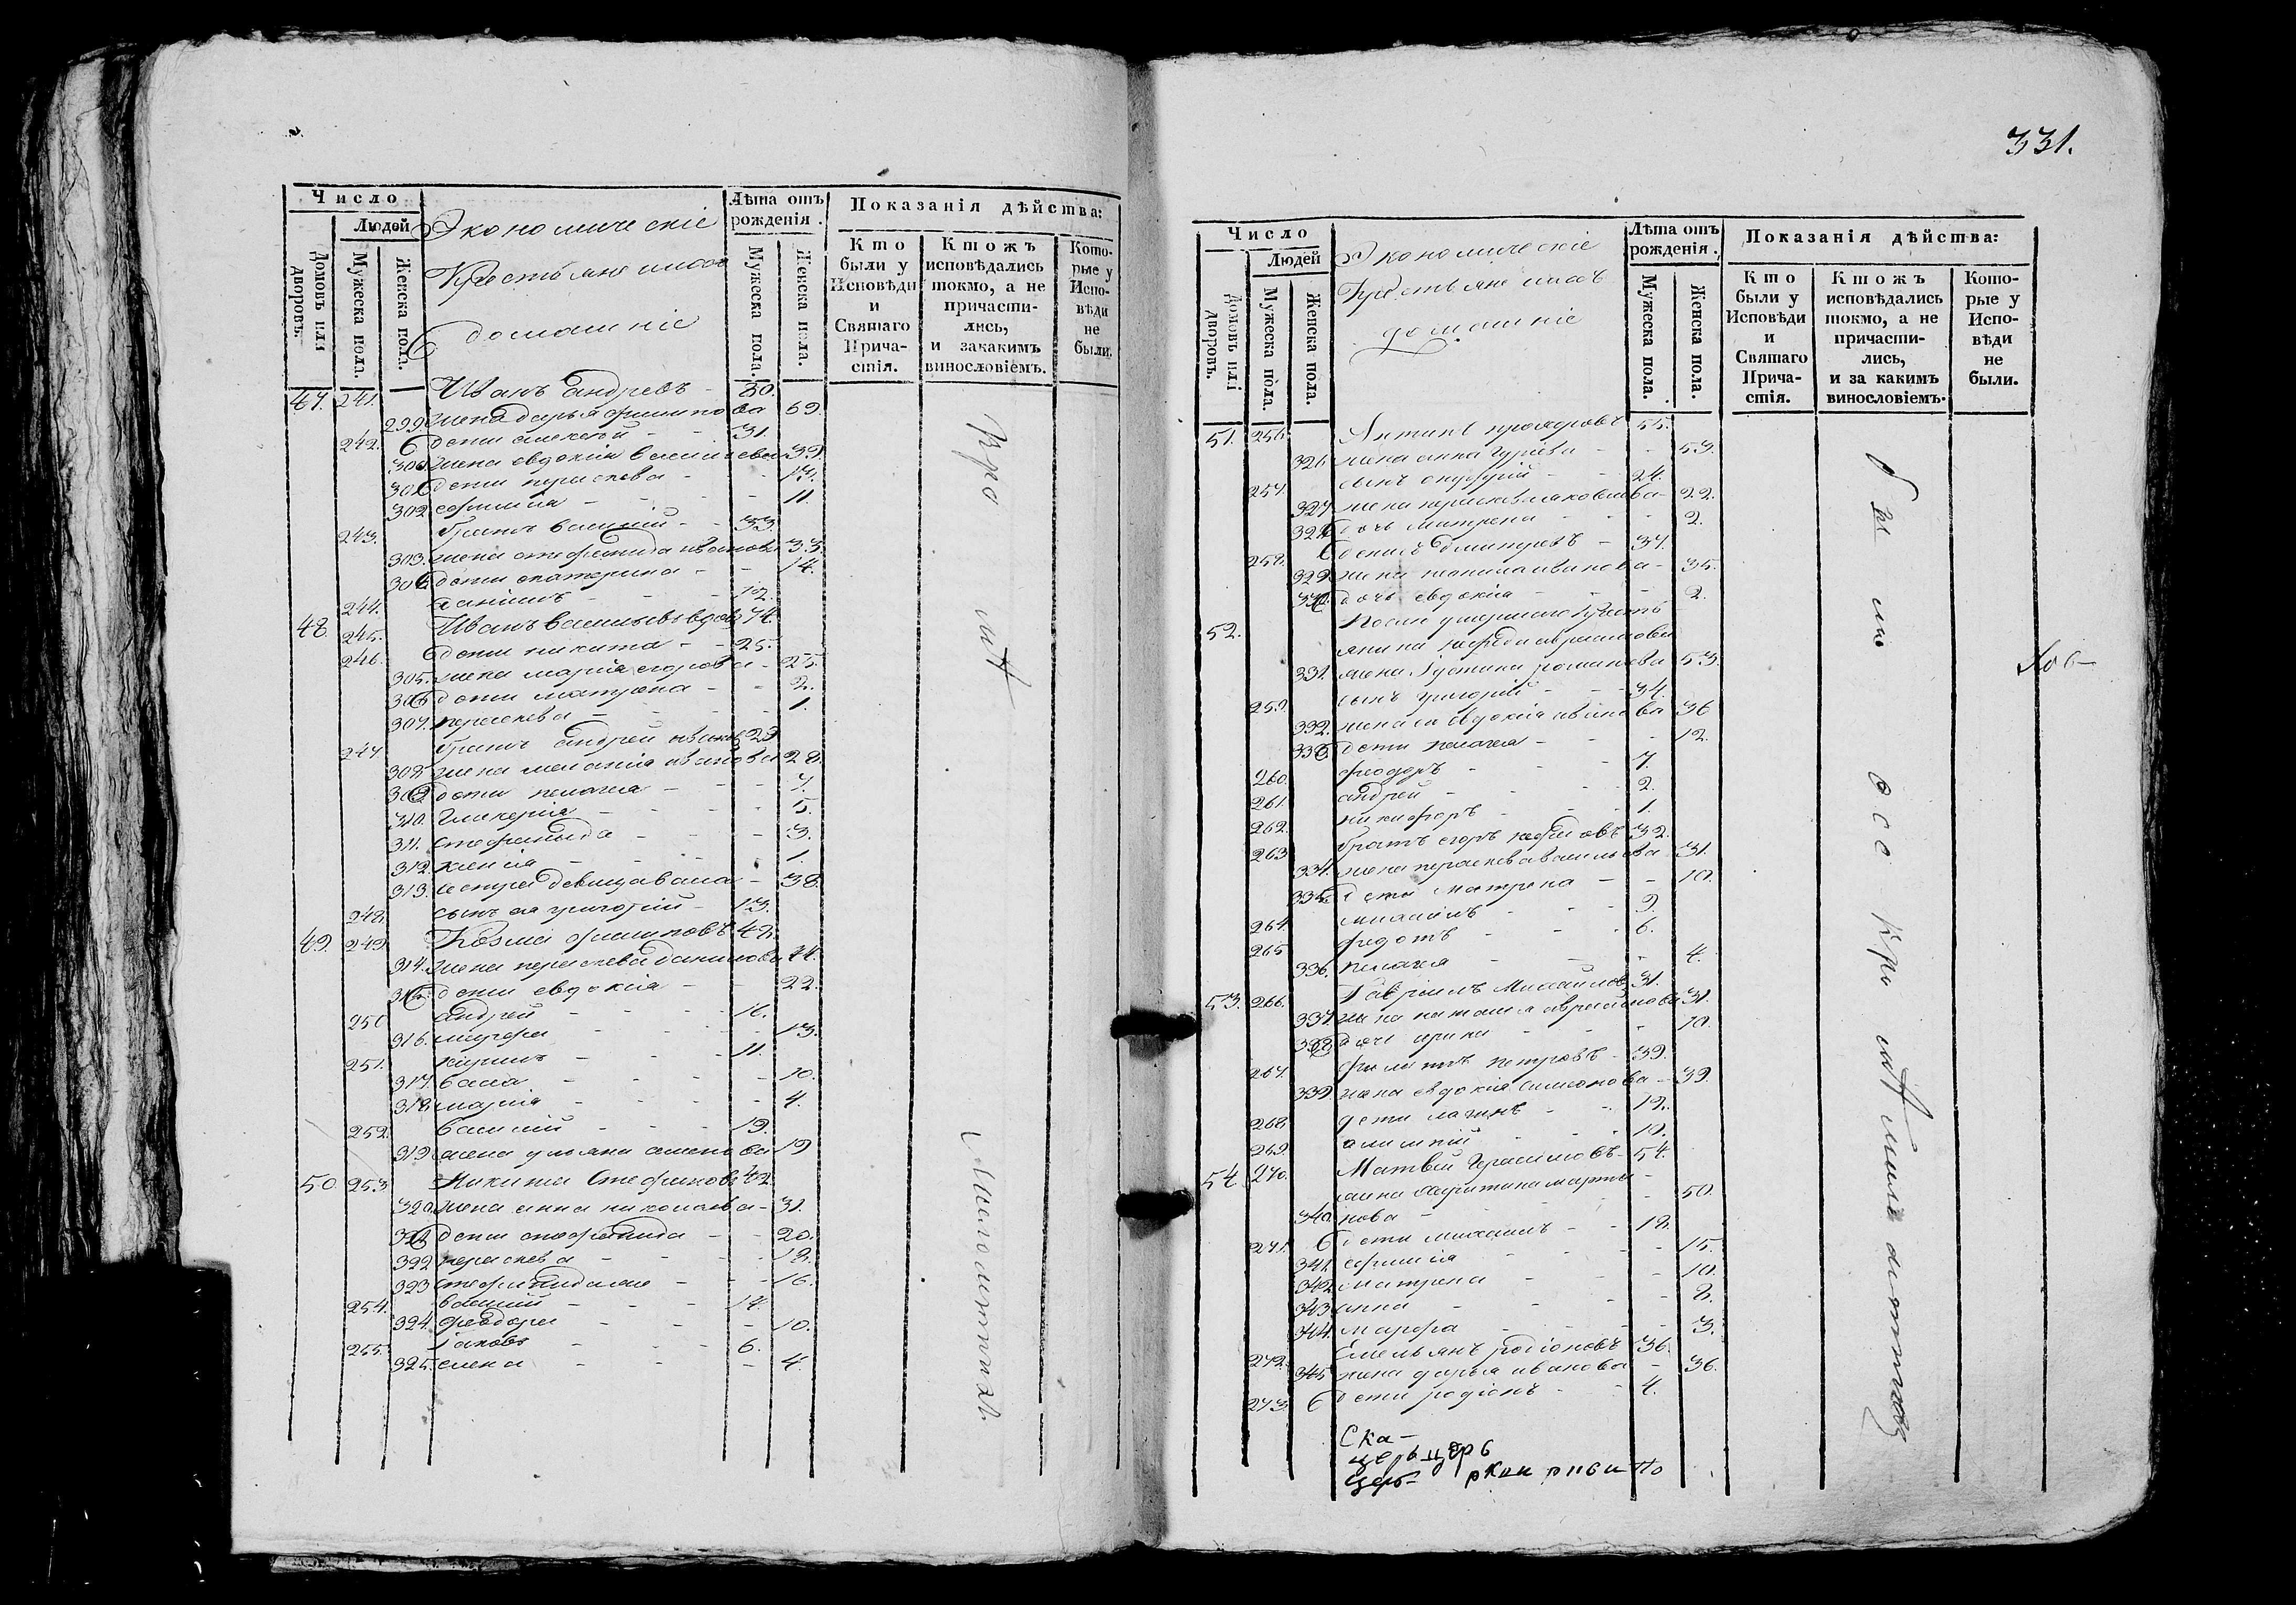 Число
Людей
Домовъ или дворовъ.
Мужеска пола.
Женска пола.
Экономическіе
Крестьяне ихъ
домашніе
Лѣта отъ рожденія.
Мужеска пола.
Женска пола.
Показанія дѣйства:
Кто были у Исповѣди и Святаго Причастія.
Ктожъ исповѣдались токмо, а не причастились, и закакимъ винословіемъ.
Которые у Исповѣди не были.
47. 241. Иванъ андреевъ - 80.
299. жена дарья филипова 69.
242. дети алексей - - 31.
300. жена евдокия васильева 39.
301. дети параскева - - 17.
302. ефимия - - - 11.
243. братъ василий - - 33.
303. жена стефанида иванова 33.
304. дети екатерина - - 14.
244. даниилъ - - - 12.
48. 245. Иванъ васильевъ вдовъ 74.
246. дети никита - - 25.
305. жена мария егорова - 25.
306. дети матрона - - 2.
307. параскева - - 1.
247. братъ андрей ивановъ 29
308. жена мелания иванова 28.
309. дети пелагея - - - 7.
310. гликерия - - - 5.
311. стефанида - - - 3.
312. ксения - - - 1.
313. сестра девица васса - 38.
248. сынъ ея григорий - 13.
49. 249. Козма филиповъ 48.
314. жена параскева данилова 44.
315. дети евдокия - - 22.
250. андрей - - - 16.
316. марфа - - - 13.
251. карпъ - - - 11.
317. васса - - - 10.
318. мария - - - 4.
252. василий - - - 19.
319. жена ульяна семенова 19
50. 253. Никита Стефановъ 42.
320. жена анна николаева - 31.
321. дети стефанида - - 20.
322. параскева - - - 18.
323. стефанида - - 16.
254. василий - - - 14.
324. феодора - - - 10.
255. Іаковъ - - - 6.
325. елена - - - 4.
331.
Число
Людей
Домовъ илі дворовъ.
Мужеска пола.
Женска пола.
Экономическіе
Крестьяне ихъ
домашніе
Лѣта отъ рожденія.
Мужеска пола.
Женска пола.
Показанія дѣйства:
Кто были у Исповѣди и Святаго Причастія.
Ктожъ исповѣдались токмо, а не причастились, и за какимъ винословіемъ.
Которые у Исповѣди не были.
51. 256. Антипъ прохоровъ 55.
326. жена анна гуріева - - 53.
257. сынъ онуфрій - - 24.
327. жена параскева яковлева - 22.
328. дочь Матрена - - 2.
258. денисъ дмитревъ - 37.
329. жена иванова - 35.
330. дочь евдокія - - - 2.
52. После умершаго Крестьянина авраамова
331. жена Іустина романова 53.
259. сынъ григорій - - 34.
332. жена ея евдокія иванова 36
333. дети пелагея - - - 12.
260. феодоръ - - - 7.
261. андрей - - - 2.
262. никифоръ - - - 1.
263. братъ егоръ 32.
334. жена параскева васильева - 31.
335. дети матрена - - 10.
264. михаилъ - - - 9.
265. федотъ - - - 6.
336. пелагея - - - 4.
53. 266. Гавріилъ Михайловъ 31.
337. жена наталья авраамова 31.
338. дочь ирина - - - 10.
267. филипъ петровъ - 39.
339. жена евдокія симеонова - 39.
268. дети - - 12.
269. алимпій - - - 10.
54. 270. Матвей Герасимовъ - 54.
340. жена мартынова - - - 50.
271. дети михаилъ - - 18.
341. ефимия - - - 15.
342. Матрена - - - 10.
343. анна - - - 8.
344. марфа - - - 3.
272. Емельянъ родіоновъ 36.
345. жена дарья иванова - 36.
273. дети родіонъ - - 4.